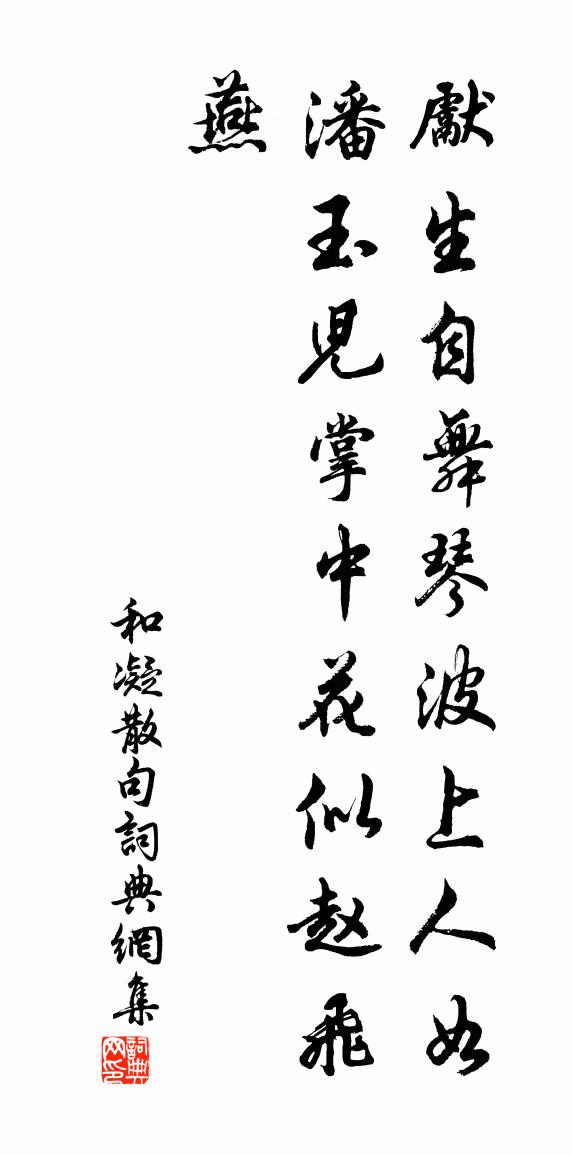 獻生自舞琴波上人如
潘玉児掌中花似赵飛
燕
和凝散句詞典網集
詞典网印